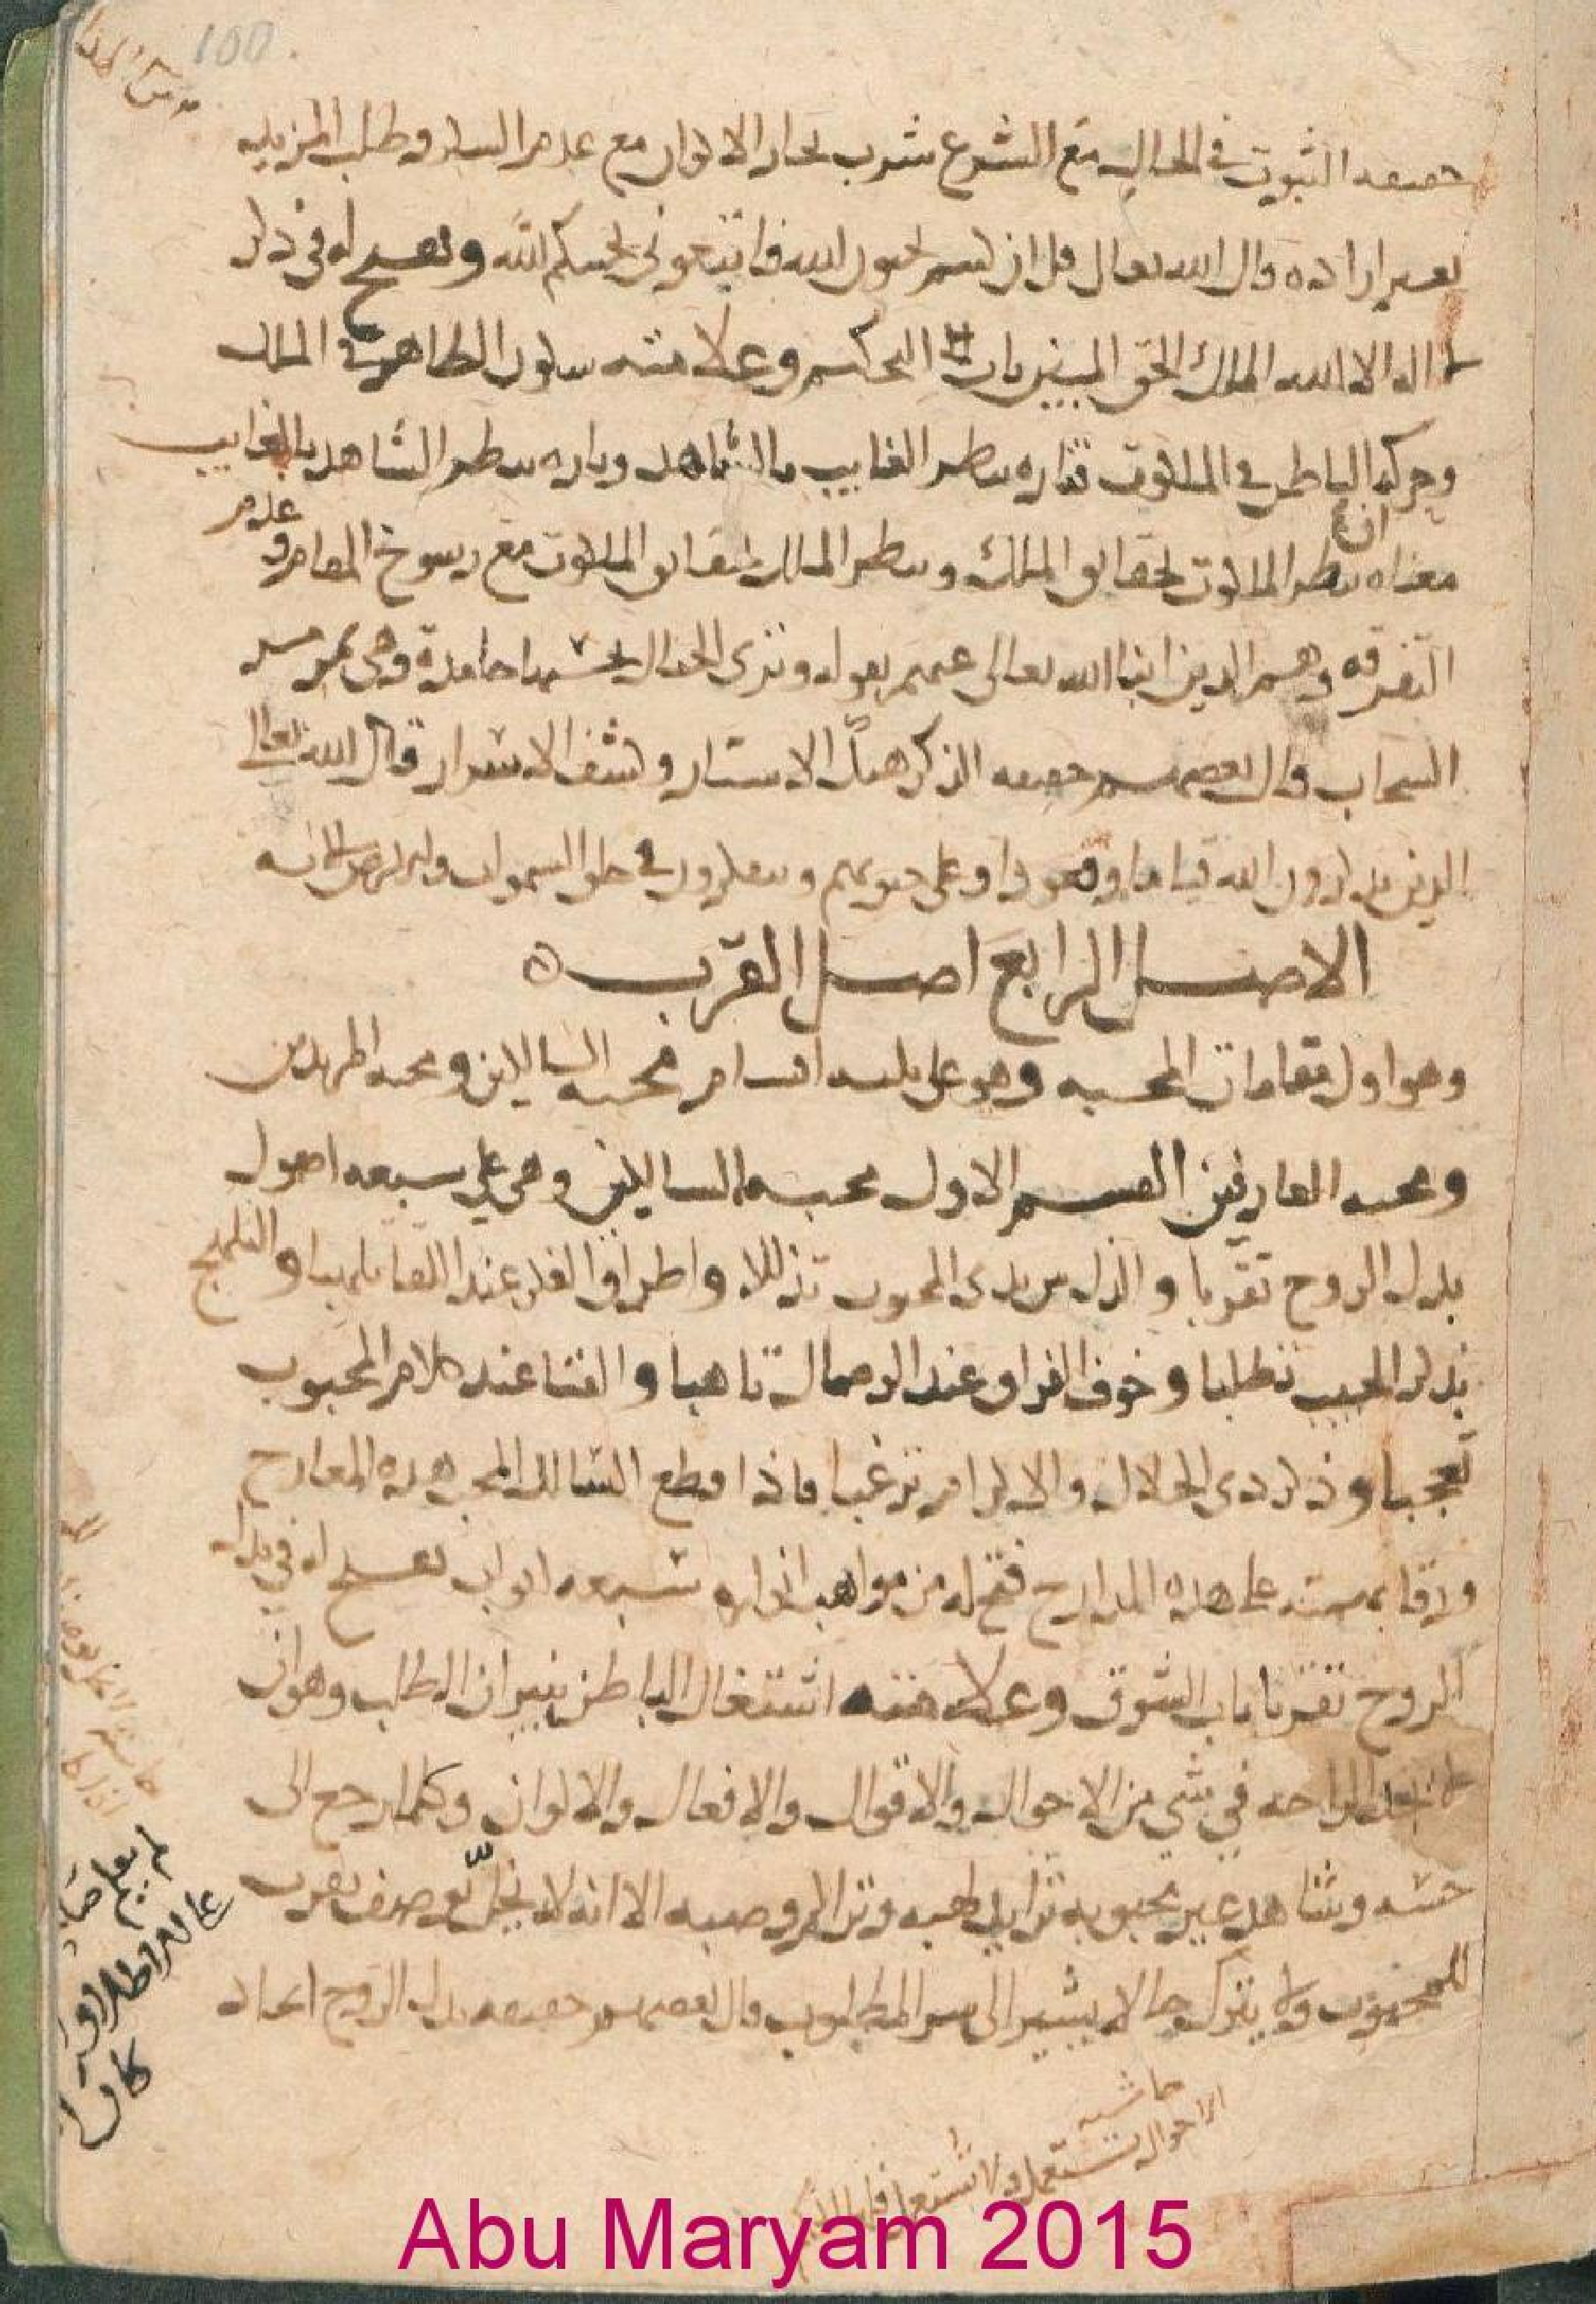 100
حقيقه الثبوت في الحال مع الشرع شرب بحار الانوار مع عدم السكر وطلب المزيد
بغير اراده قال الله تعالى قل ان كنتم تحبون الله فاتبعوني يحببكم الله ويفتح له في ذكر
لا اله الا الله الملك الحق المبين باب التحكيم وعلامته سكون الظاهر في الملك
وحركه الباطن في الملكوت فتاره ينظر الغايب بالشاهد وتاره ينظر الشاهد بالغايب
معناه ان ينظر الملكوت بحقايق الملك وينظر الملك بحقايق الملكوت مع رسوخ المقام وعدم
التفرقه وهم الدين انبا الله تعالى عنهم بقوله وترى الجبال تحسبها جامدة وهي تمر مر
السحاب وقال بعضهم حقيقه الذكر هتك الاستار وكشف الاسرار قال الله تعالى
الذين يذكرون الله قياما وقعودا وعلى جنوبهم ويتفكرون في خلق السموات والارض الايه
الاصل الرابع اصل القرب ه
وهو اول مقامات المحبه وهو على ثلثه اقسام محبه السالكين ومحبه المريدين
ومحبه العارفين القسم الاول محبه السالكين وهي على سبعه اصول
بذل الروح تقربا والذل بين يدي المحبوب تذللا واطراق الفكر عند اللقا تلميا والتلهج
بذكر الحبيب تطلبا وخوف الفراق عند الوصال تاهبا والفنا عند كلام المحبوب
تعجبا وذكر ذي الجلال والاكرام ترغبا فاذا قطع السالك المحب هذه المعارج
ورقا بهمته على هذه المدارج فتح له من مواهب انواره سبعه ابواب يفتح له في بذله
الروح تقربا باب الشوق وعلامته اشتغال الباطن بنيران الطلب وهو ان
لا يجد الراحه في شي من الاحوال والاقوال والافعال والالوان وكلما رجع الى
حسه وشاهد غير محبوبه تزايد لهبه وتراكم وصبه الا انه لا يخل بوصف يقرب
للمحبوب ولا يترك حالا يشير الى سر المطلوب قال بعضهم حقيقه بذل الروح ايجاد
حاشيه
الاحوال تستعمل ولا تشتعل